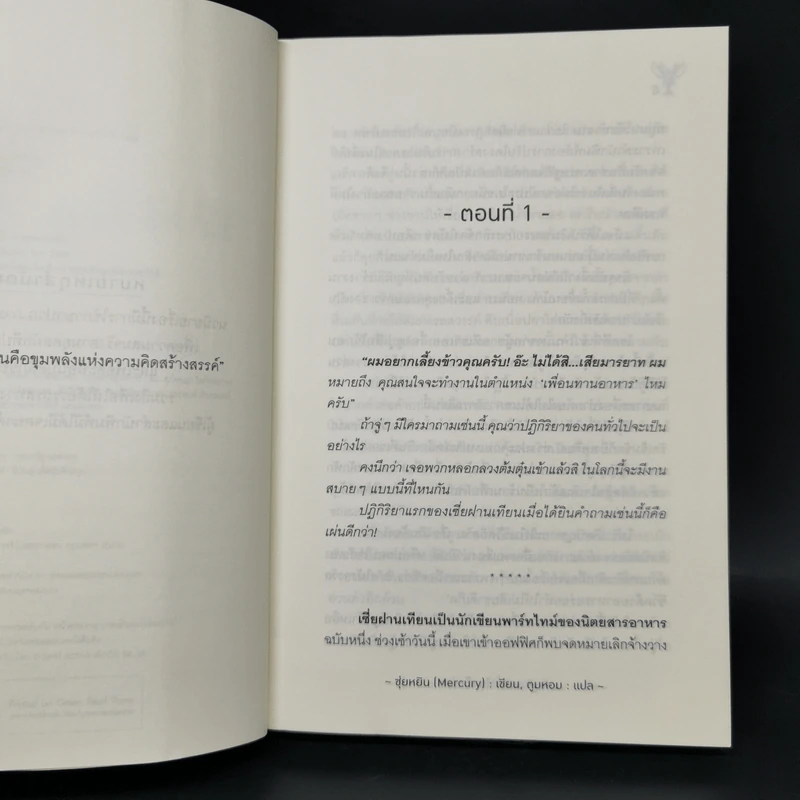 นคือขุมพลังแห่งความคิดสร้างสรรค์"
- ตอนที่ 1 -
“ผมอยากเลี้ยงข้าวคุณครับ! อ๊ะ ไม่ได้สิ...เสียมารยาท ผม
หมายถึง คุณสนใจจะทำงานในตำแหน่ง ‘เพื่อนทานอาหาร’ ไหม
ครับ”
ถ้าจู่ๆ มีใครมาถามเช่นนี้ คุณว่าปฏิกิริยาของคนทั่วไปจะเป็น
อย่างไร
คงนึกว่า เจอพวกหลอกลวงต้มตุ๋นเข้าแล้วสิ ในโลกนี้จะมีงาน
สบายๆ แบบนี้ที่ไหนกัน
ปฏิกิริยาแรกของเซี่ยฝานเทียนเมื่อได้ยินคำถามเช่นนี้ก็คือ
เผ่นดีกว่า!
* * * * *
เซี่ยฝานเทียนเป็นนักเขียนพาร์ทไทม์ของนิตยสารอาหาร
ฉบับหนึ่ง ช่วงเช้าวันนี้ เมื่อเขาเข้าออฟฟิศก็พบจดหมายเลิกจ้างวาง
~ ซุ่ยหยิน (Mercury) : เขียน, ตูมหอม : แปล ~